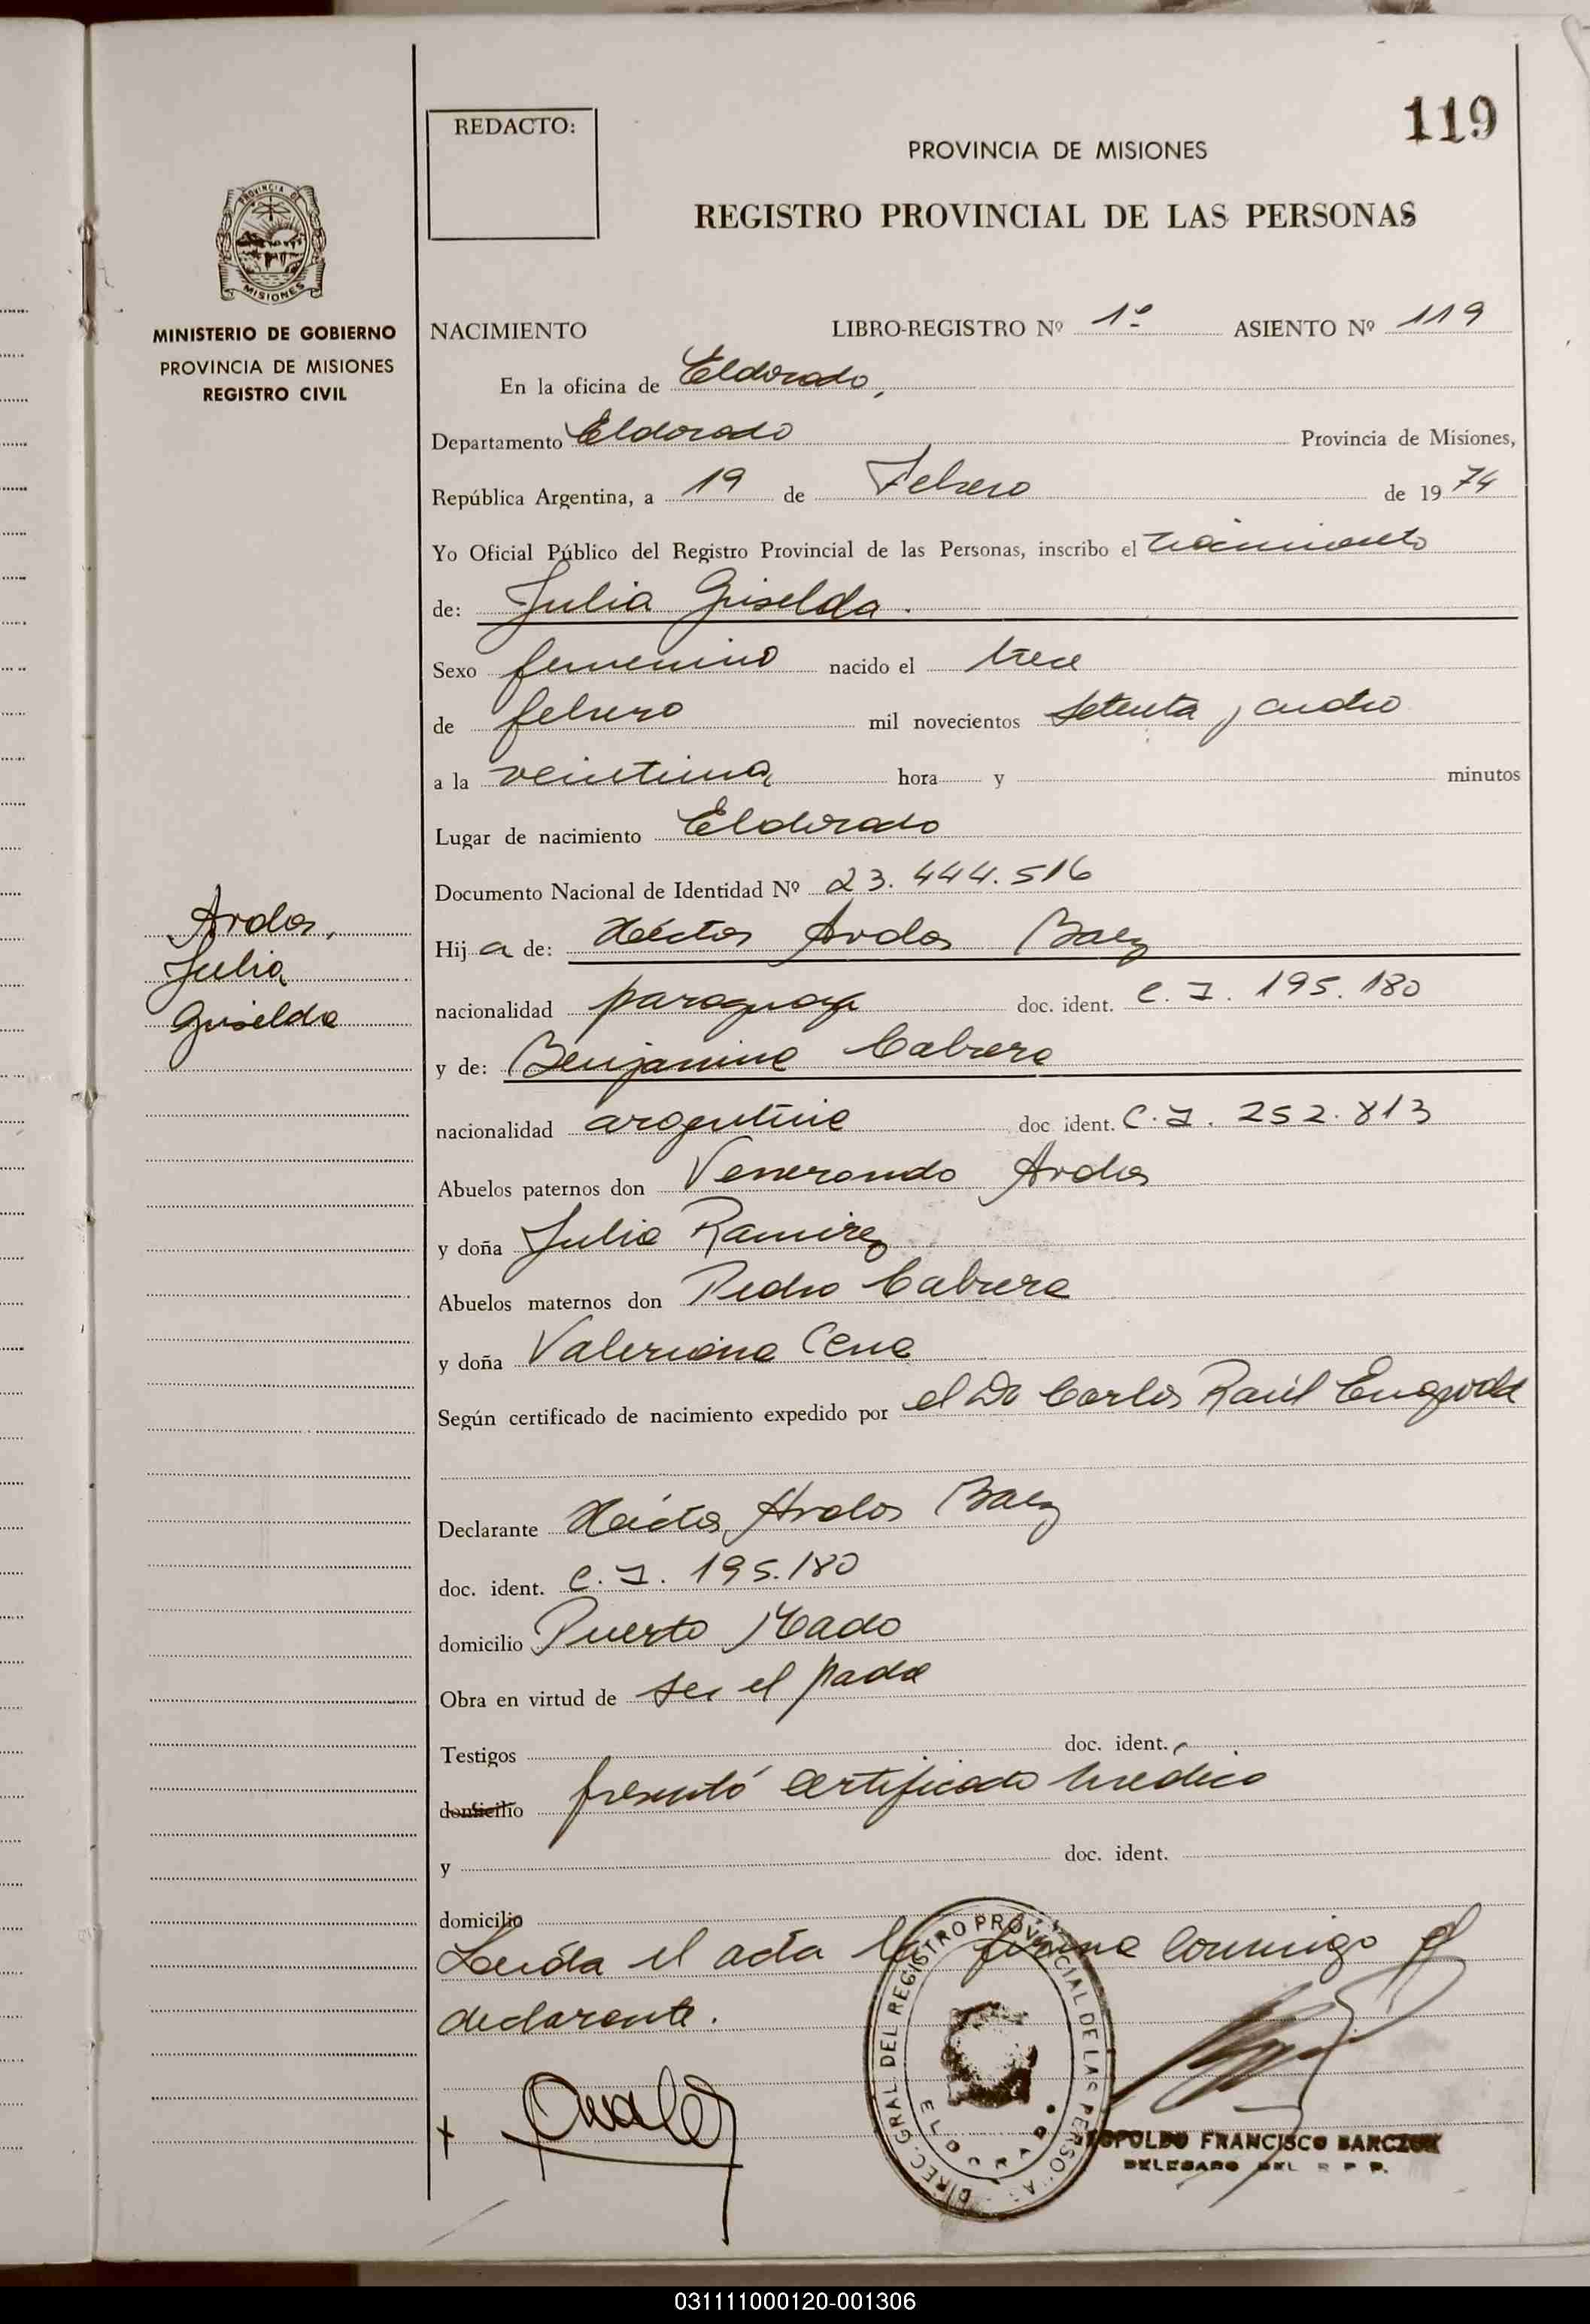 119
REDACTO:
PROVINCIA DE MISIONES
REGISTRO PROVINCIAL DE LAS PERSONAS
PROVINCIA DE
MISIONES
MINISTERIO DE GOBIERNO
PROVINCIA DE MISIONES
REGISTRO CIVIL
NACIMIENTO LIBRO-REGISTRO Nº 1º ASIENTO Nº 119
En la oficina de Eldorado,
Departamento Eldorado Provincia de Misiones,
República Argentina, a 19 de Febrero de 1974
Yo Oficial Público del Registro Provincial de las Personas, inscribo el nacimiento
de: Julia Griselda.
Sexo femenino nacido el trece
de febrero mil novecientos setenta y cuatro
a la veintiuna hora y minutos
Lugar de nacimiento Eldorado
Documento Nacional de Identidad Nº 23.444.516
Avalos,
Julia
Griselda
Hija de: Héctor Avalos Baez
nacionalidad paraguaya doc. ident. C. I. 195.180
y de: Benjamina Cabrera
nacionalidad argentina doc. ident. C. I. 252.813
Abuelos paternos don Venerando Avalos
y doña Julia Ramirez
Abuelos maternos don Pedro Cabrera
y doña Valeriana Cena
Según certificado de nacimiento expedido por el Dr Carlos Raúl
Declarante Héctor Avalos Baez
doc. ident. C. I. 195.180
domicilio Puerto Mado
Obra en virtud de ser el padre
Testigos doc. ident.
domicilio presentó certificado médico
y doc. ident.
domicilio
Leída el acta la firma conmigo el
declarante.
DIREC. GRAL. DEL REGISTRO PROVINCIAL DE LAS PERSONAS
ELDORADO
LEOPOLDO FRANCISCO BARCZUK
DELEGADO DEL R P P.
031111000120-001306